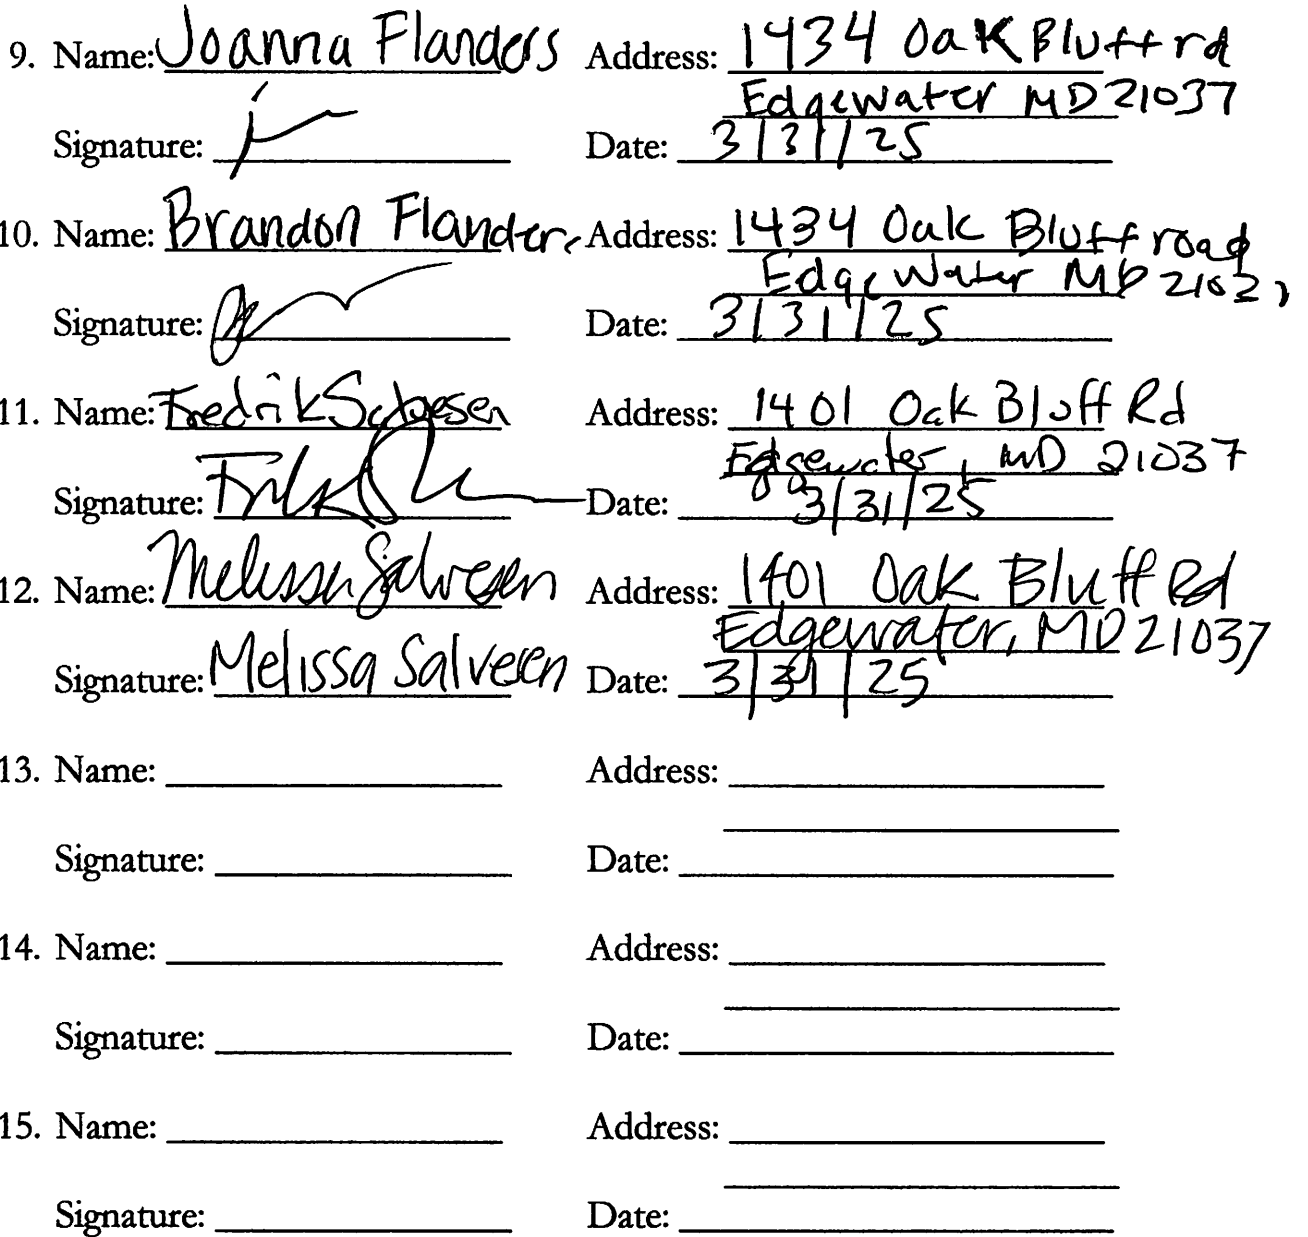 9. Name: Joanna Flanders Address: 1434 Oak Bluff rd
Edgewater MD 21037
Signature: Date: 3/31/25
10. Name: Brandon Flanders Address: 1434 Oak Bluff road
Edgewater MD 21037
Signature: Date: 3/31/25
11. Name: Fredrik Salvesen Address: 1401 Oak Bluff Rd
Edgewater, MD 21037
Signature: Date: 3/31/25
12. Name: Melissa Salvesen Address: 1401 Oak Bluff Rd
Edgewater, MD 21037
Signature: Melissa Salvesen Date: 3/31/25
13. Name: Address:
Signature: Date:
14. Name: Address:
Signature: Date:
15. Name: Address:
Signature: Date: